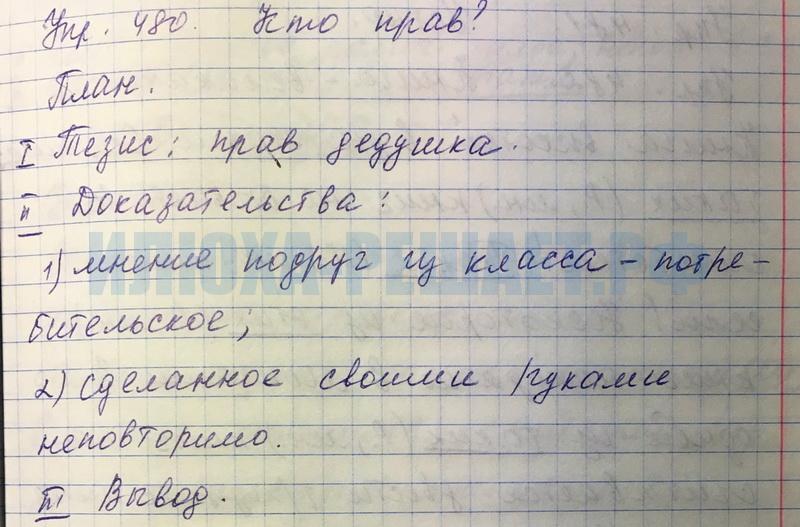 Упр. 480. Кто прав?
План.
I Тезис: прав дедушка.
II Доказательства:
ИЛЮХА-РЕШАЕТ.РФ
1) мнение подруг из класса – потре-
бительское;
2) сделанное своими руками
неповторимо.
III Вывод.